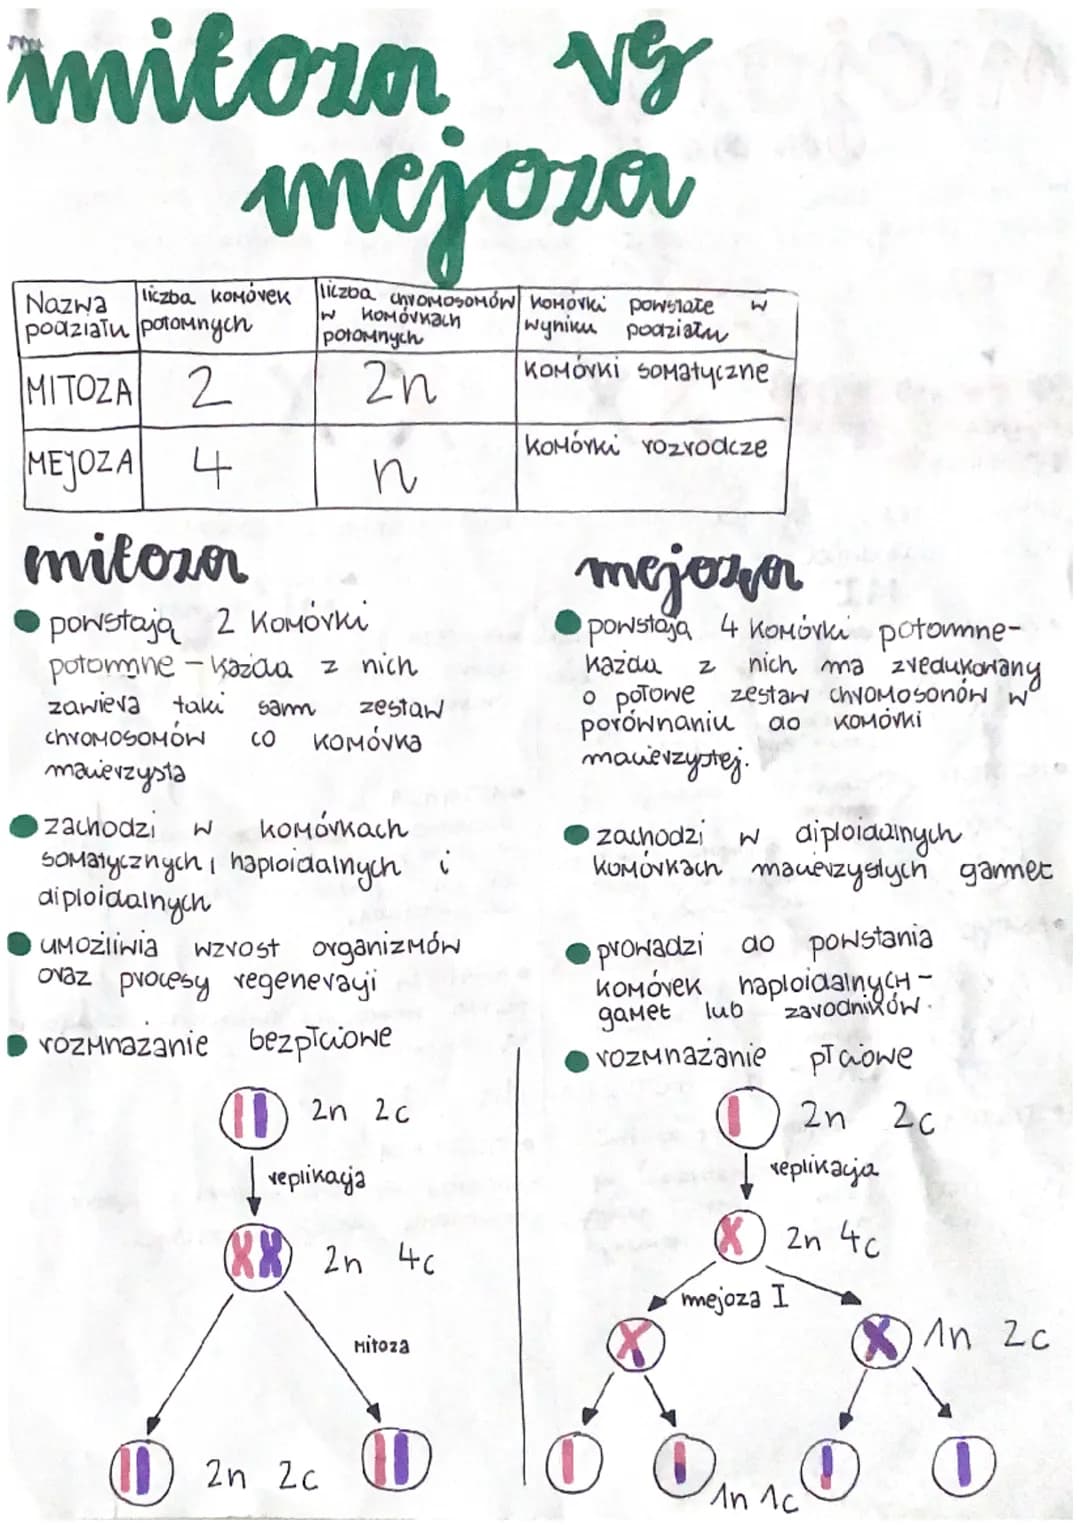 mitoza vs
mejoza
Nazwa podziału
liczba komórek potomnych
liczba chromosomów w komórkach potomnych
komórki powstałe w wyniku podziału
MITOZA 2 2n komórki somatyczne
MEJOZA 4 n komórki rozrodcze
mitoza
powstają 2 komórki
potomne - każda z nich
zawiera taki sam zestaw
chromosomów co komórka
macierzysta
zachodzi w komórkach
somatycznych, haploidalnych i
diploidalnych
umożliwia wzrost organizmów
oraz procesy regeneracji
rozmnażanie bezpłciowe
2n 2c
replikacja
2n 4c
mitoza
2n 2c
mejoza
powstają 4 komórki potomne-
każda z nich ma zredukowany
o połowe zestaw chromosonów w
porównaniu do komórki
macierzystej.
zachodzi w diploidalnych
komórkach macierzystych gamet
prowadzi do powstania
komórek haploidalnych -
gamet lub zarodników.
rozmnażanie płciowe
2n 2c
replikacja
2n 4c
mejoza I
1n 2c
1n 1c